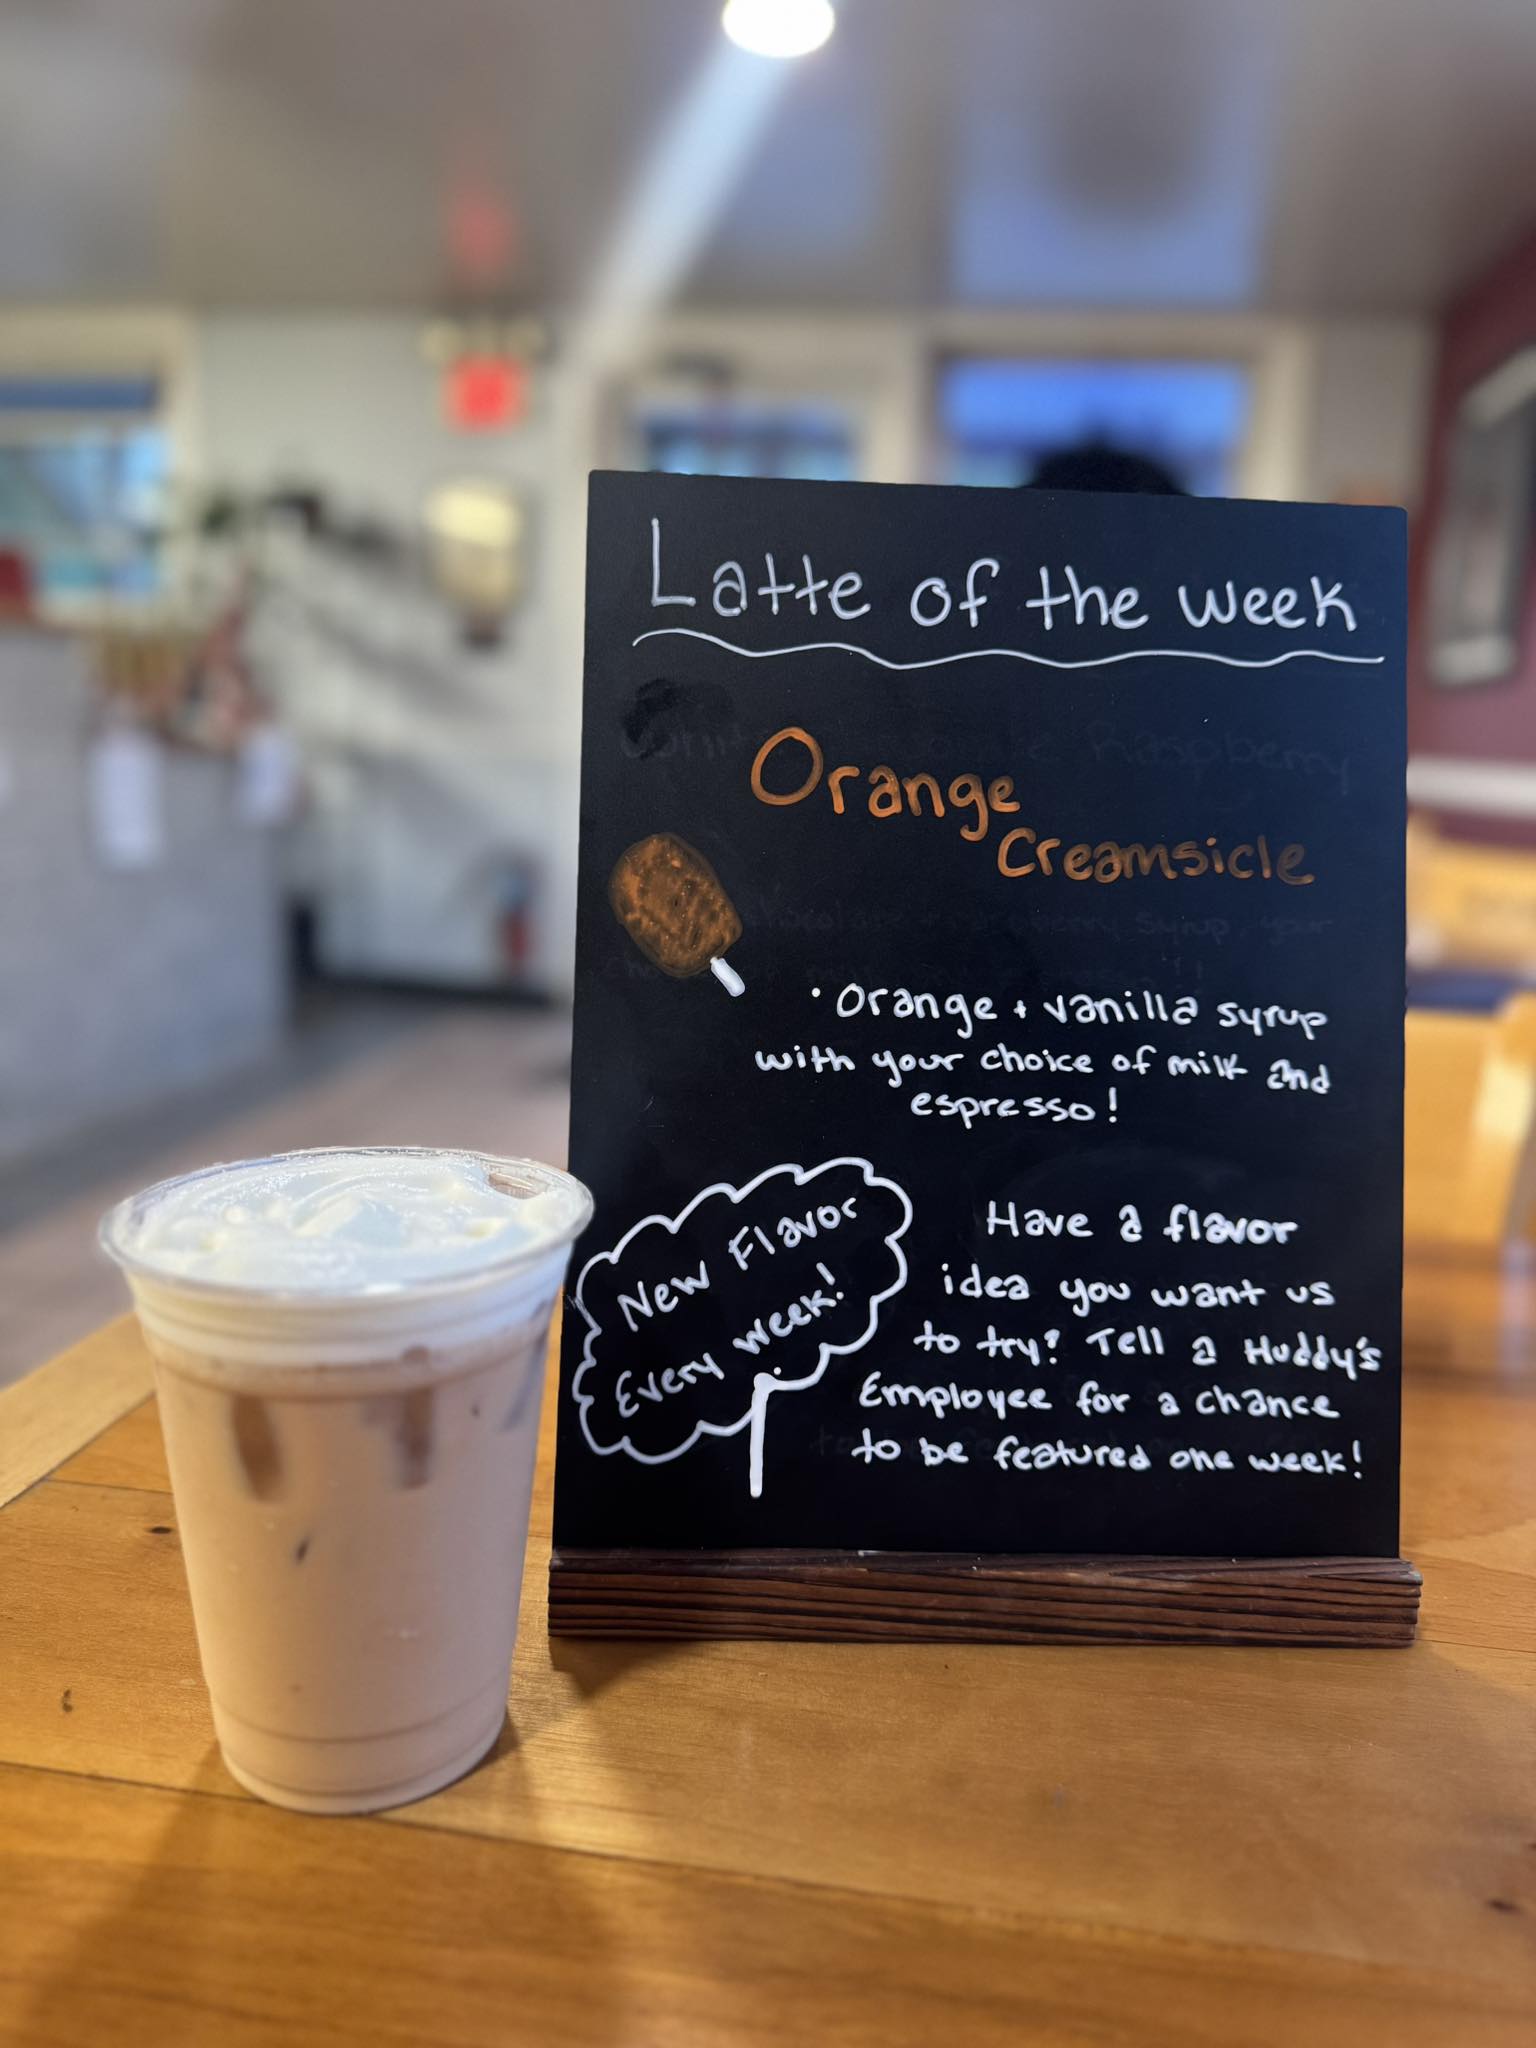 Latte of the week
Orange
Creamsicle
• Orange + vanilla syrup
with your choice of milk and
espresso!
New Flavor
Every week!
Have a flavor
idea you want us
to try? Tell a Huddy's
Employee for a chance
to be featured one week!
Raspberry
syrup, your